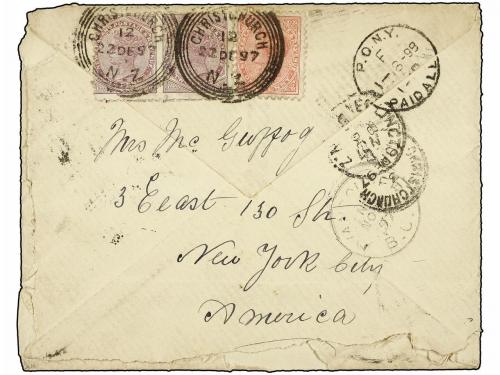 CHRISTCHURCH
12
22 DE 97
N-Z
CHRISTCHURCH
12
22 DE 97
N Z
P.O.N.Y.
PAID ALL
CHRISTCHURCH
B.C.
Mrs Mc Guffog
3 East 130 Str.
New York City
America